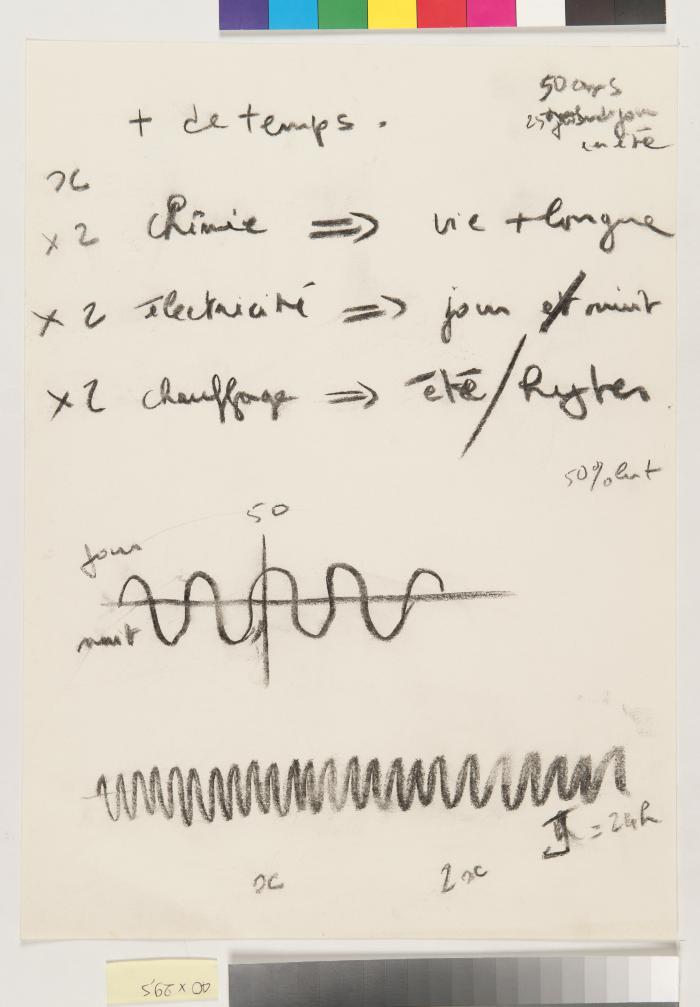 50 ans
25
en été
+ de temps.
x
x2 chimie ⇒ vie + longue
x2 électricité ⇒ jour et nuit
x2 chauffage ⇒ été/hyber
50%
50
jour
nuit
= 24h
x 2x
40 x 29,5